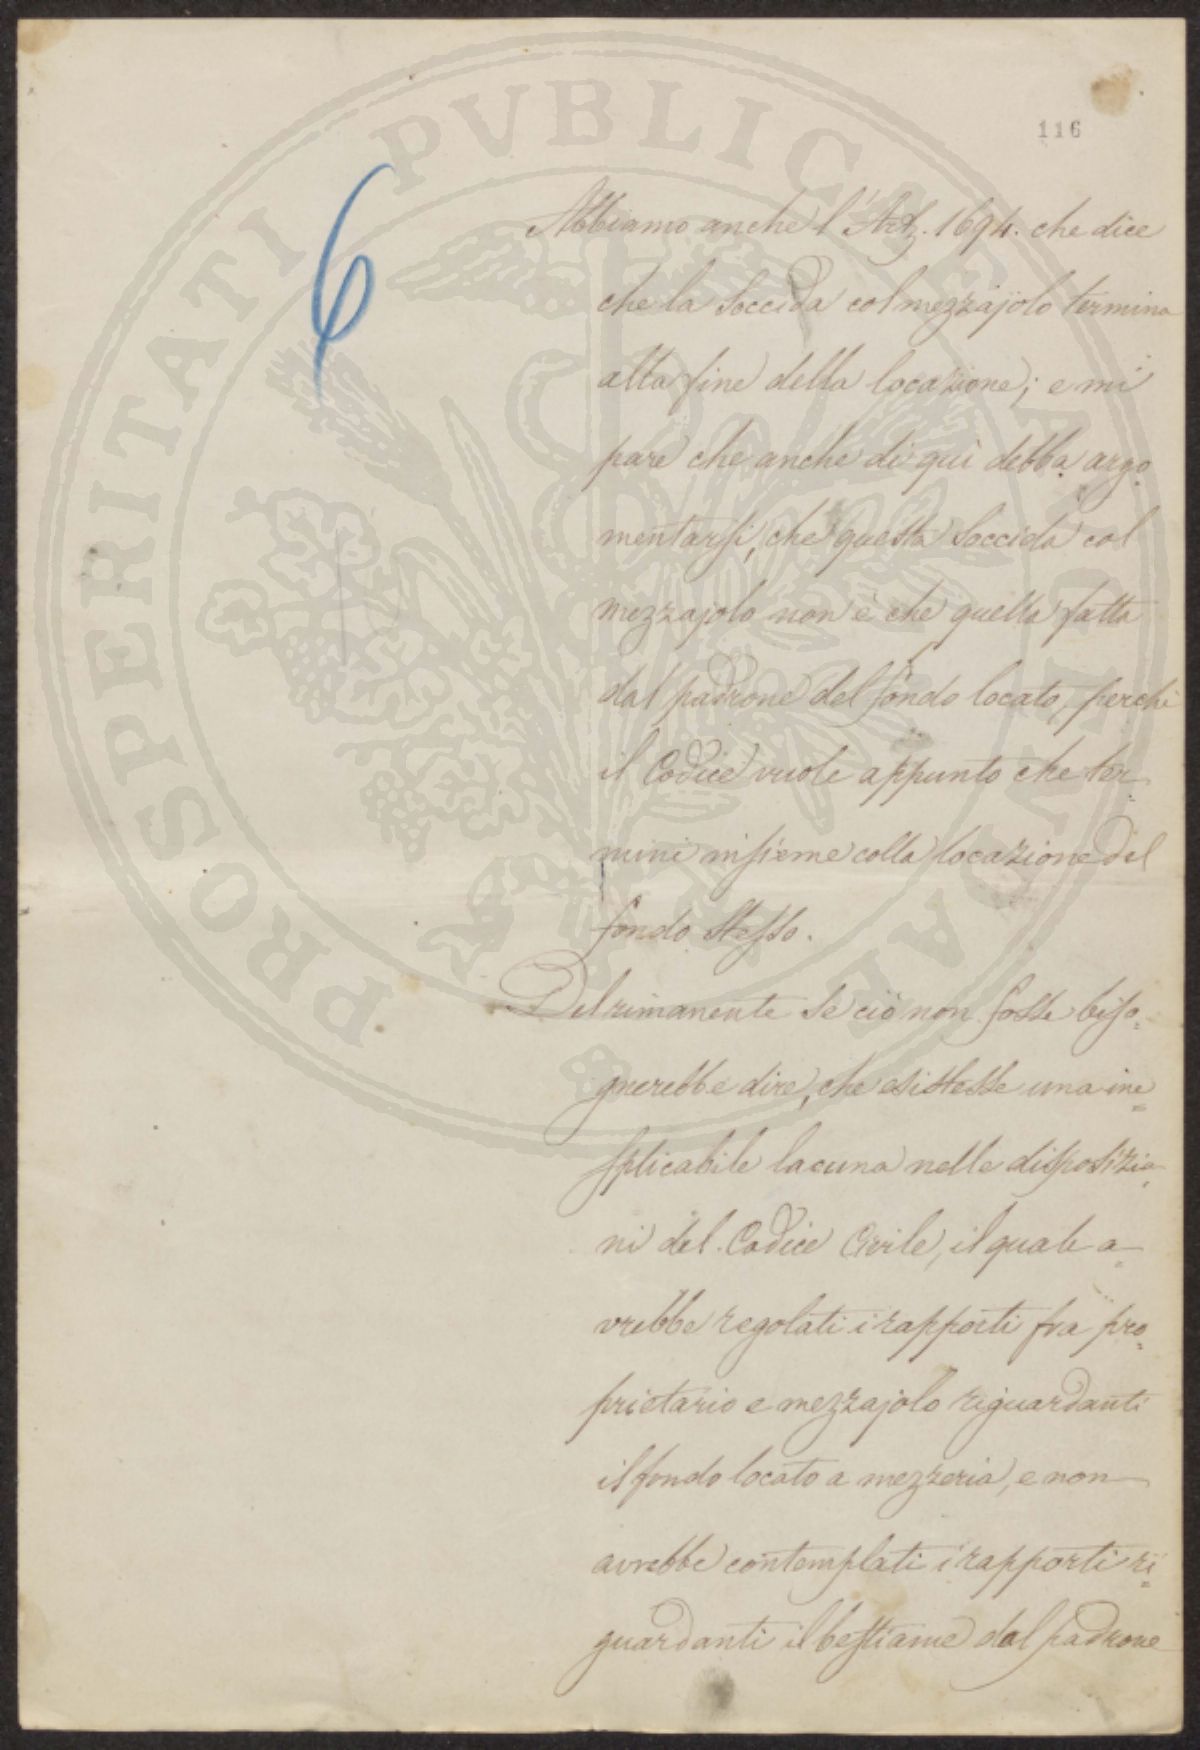 PROSPERITATI PVBLICAE AVGENDAE
116
6
Abbiamo anche l'Art. 1694. che dice
che la soccida col mezzajolo termina
alla fine della locazione; e mi
pare che anche di quì debba argo
mentarsi, che questa soccida col
mezzajolo non è che quella fatta
dal padrone del fondo locato, perchè
il Codice vuole appunto che ter
mini insieme colla locazione del
fondo stesso.
Del rimanente se ciò non fosse biso
gnerebbe dire, che esistesse una ine
splicabile lacuna nelle disposizio
ni del Codice Civile, il quale a
vrebbe regolati i rapporti fra pro
prietario e mezzajolo riguardanti
il fondo locato a mezzeria, e non
avrebbe contemplati i rapporti ri
guardanti il bestiame dal padrone